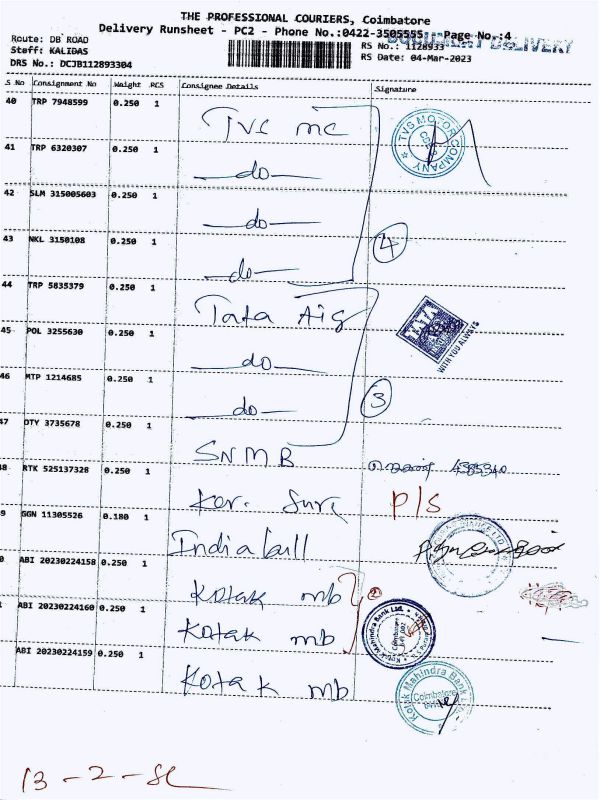 THE PROFESSIONAL COURIERS, Coimbatore
Delivery Runsheet - PC2 - Phone No.:0422-3505555 Page No.:4
DOCUMENT DELIVERY
Route: DB ROAD
Staff: KALIDAS
DRS No.: DCJB112893304
RS No.: 1128933
RS Date: 04-Mar-2023
S No Consignment No Weight PCS Consignee Details Signature
40 TRP 7948599 0.250 1 TVS mc
TVS MOTOR COMPANY
41 TRP 6320307 0.250 1 —do—
42 SLM 315005603 0.250 1 —do—
43 NKL 3150108 0.250 1 —do— 4
44 TRP 5835379 0.250 1 Tata Aig
WITH YOU ALWAYS
45 POL 3255630 0.250 1 —do—
46 MTP 1214685 0.250 1 —do— 3
47 OTY 3735678 0.250 1 SNMB
48 RTK 525137328 0.250 1 Kor. Sure P/S
9 GGN 11305526 0.180 1 Indiabull
0 ABI 20230224158 0.250 1 Kotak mb 2
ABI 20230224160 0.250 1 Kotak mb
Kotak Mahindra Bank Ltd.
ABI 20230224159 0.250 1 Kotak mb
Kotak Mahindra Bank Ltd.
Coimbatore
13-2-